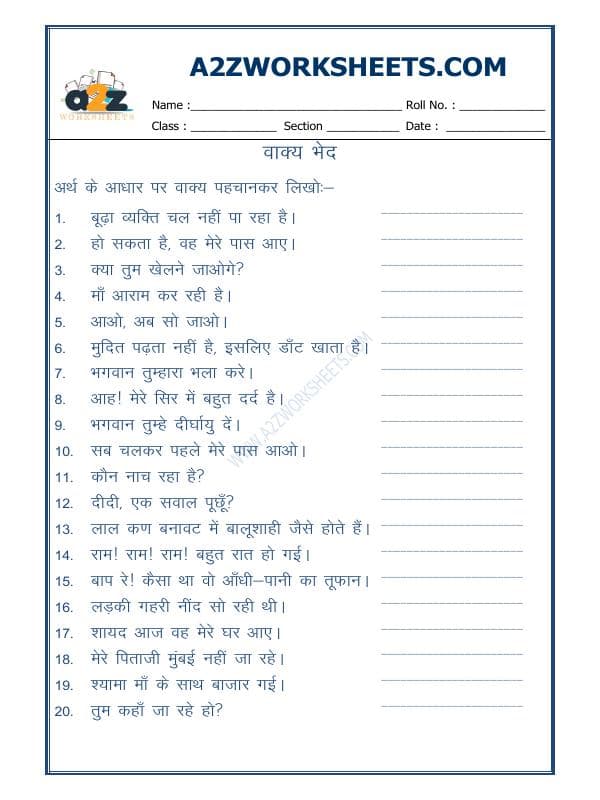 A2ZWORKSHEETS.COM
a2z
WORKSHEETS
Name :______________________________ Roll No. : ____________
Class : ____________ Section __________ Date : ______________
वाक्य भेद
अर्थ के आधार पर वाक्य पहचानकर लिखोः–
1. बूढ़ा व्यक्ति चल नहीं पा रहा है।
2. हो सकता है, वह मेरे पास आए।
3. क्या तुम खेलने जाओगे?
4. माँ आराम कर रही है।
5. आओ, अब सो जाओ।
6. मुदित पढ़ता नहीं है, इसलिए डाँट खाता है।
7. भगवान तुम्हारा भला करे।
8. आह! मेरे सिर में बहुत दर्द है।
9. भगवान तुम्हे दीर्घायु दें।
10. सब चलकर पहले मेरे पास आओ।
11. कौन नाच रहा है?
12. दीदी, एक सवाल पूछूँ?
13. लाल कण बनावट में बालूशाही जैसे होते हैं।
14. राम! राम! राम! बहुत रात हो गई।
15. बाप रे! कैसा था वो आँधी–पानी का तूफान।
16. लड़की गहरी नींद सो रही थी।
17. शायद आज वह मेरे घर आए।
18. मेरे पिताजी मुंबई नहीं जा रहे।
19. श्यामा माँ के साथ बाजार गई।
20. तुम कहाँ जा रहे हो?
WWW.A2ZWORKSHEETS.COM